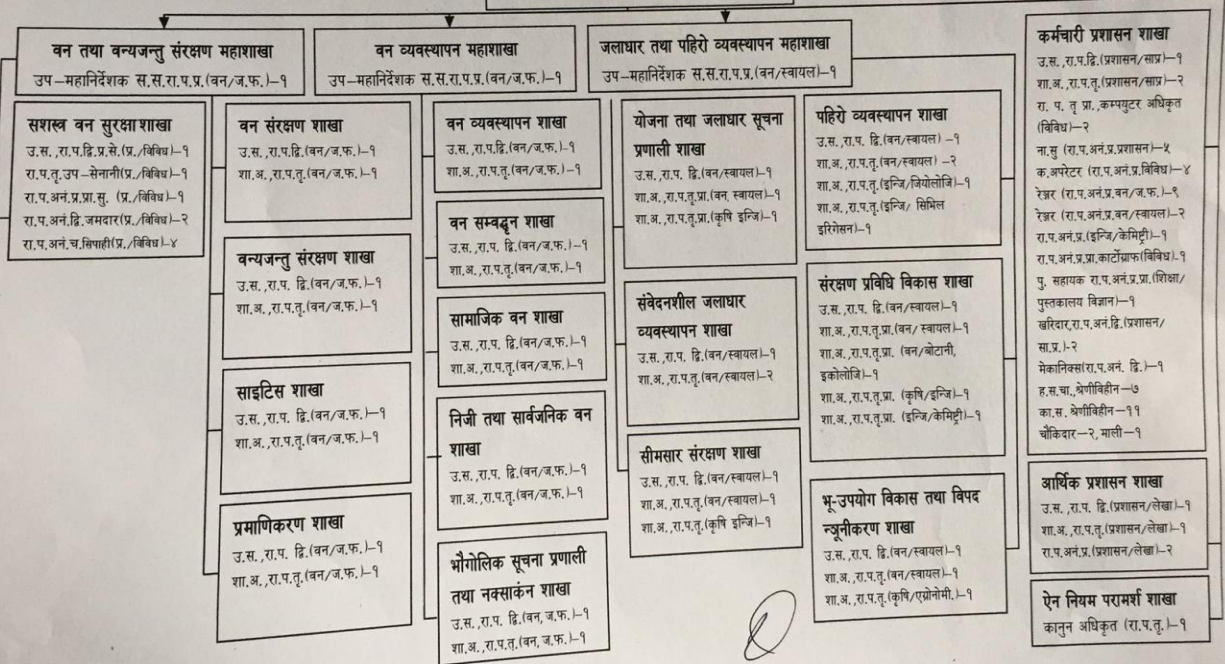 वन तथा वन्यजन्तु संरक्षण महाशाखा
उप-महानिर्देशक स.स.रा.प.प्र.(वन/ज.फ.)-१
वन व्यवस्थापन महाशाखा
उप-महानिर्देशक स.स.रा.प.प्र.(वन/ज.फ.)-१
जलाधार तथा पहिरो व्यवस्थापन महाशाखा
उप-महानिर्देशक स.स.रा.प.प्र.(वन/स्वायल)-१
सशस्त्र वन सुरक्षा शाखा
उ.स.,रा.प.द्वि.प्र.से.(प्र./विविध)-१
रा.प.तृ.उप-सेनानी(प्र./विविध)-१
रा.प.अनं.प्र.प्रा.सु. (प्र./विविध)-१
रा.प.अनं.द्वि.जमदार(प्र./विविध)-२
रा.प.अनं.च.सिपाही(प्र./विविध)-४
वन संरक्षण शाखा
उ.स.,रा.प.द्वि.(वन/ज.फ.)-१
शा.अ.,रा.प.तृ.(वन/ज.फ.)-१
वन्यजन्तु संरक्षण शाखा
उ.स.,रा.प. द्वि.(वन/ज.फ.)-१
शा.अ.,रा.प.तृ.(वन/ज.फ.)-१
साइटिस शाखा
उ.स.,रा.प. द्वि.(वन/ज.फ.)-१
शा.अ.,रा.प.तृ.(वन/ज.फ.)-१
प्रमाणिकरण शाखा
उ.स.,रा.प. द्वि.(वन/ज.फ.)-१
शा.अ.,रा.प.तृ.(वन/ज.फ.)-१
वन व्यवस्थापन शाखा
उ.स.,रा.प.द्वि.(वन/ज.फ.)-१
शा.अ.,रा.प.तृ.(वन/ज.फ.)-१
वन सम्वर्द्धन शाखा
उ.स.,रा.प. द्वि.(वन/ज.फ.)-१
शा.अ.,रा.प.तृ.(वन/ज.फ.)-१
सामाजिक वन शाखा
उ.स.,रा.प. द्वि.(वन/ज.फ.)-१
शा.अ.,रा.प.तृ.(वन/ज.फ.)-१
निजी तथा सार्वजनिक वन
शाखा
उ.स.,रा.प. द्वि.(वन/ज.फ.)-१
शा.अ.,रा.प.तृ.(वन/ज.फ.)-१
भौगोलिक सूचना प्रणाली
तथा नक्साकंन शाखा
उ.स.,रा.प. द्वि.(वन, ज.फ.)-१
शा.अ.,रा.प.तृ.(वन, ज.फ.)-१
योजना तथा जलाधार सूचना
प्रणाली शाखा
उ.स.,रा.प. द्वि.(वन/स्वायल)-१
शा.अ.,रा.प.तृ.प्रा.(वन, स्वायल)-१
शा.अ.,रा.प.तृ.प्रा.(कृषि इन्जि)-१
संवेदनशील जलाधार
व्यवस्थापन शाखा
उ.स.,रा.प. द्वि.(वन/स्वायल)-१
शा.अ.,रा.प.तृ.(वन/स्वायल)-२
सीमसार संरक्षण शाखा
उ.स.,रा.प. द्वि.(वन/स्वायल)-१
शा.अ.,रा.प.तृ.(वन/स्वायल)-१
शा.अ.,रा.प.तृ.(कृषि इन्जि)-१
पहिरो व्यवस्थापन शाखा
उ.स.,रा.प. द्वि.(वन/स्वायल) -१
शा.अ.,रा.प.तृ.(वन/स्वायल) -२
शा.अ.,रा.प.तृ.(इन्जि/जियोलोजि)-१
शा.अ.,रा.प.तृ.(इन्जि/ सिभिल
इरिगेसन)-१
संरक्षण प्रविधि विकास शाखा
उ.स.,रा.प. द्वि.(वन/स्वायल)-१
शा.अ.,रा.प.तृ.प्रा.(वन/ स्वायल)-१
शा.अ.,रा.प.तृ.प्रा. (वन/बोटानी,
इकोलोजि)-१
शा.अ.,रा.प.तृ.प्रा. (कृषि/इन्जि)-१
शा.अ.,रा.प.तृ.प्रा. (इन्जि/केमिष्ट्री)-१
भू-उपयोग विकास तथा विपद
न्यूनीकरण शाखा
उ.स.,रा.प. द्वि.(वन/स्वायल)-१
शा.अ.,रा.प.तृ.(वन/स्वायल)-१
शा.अ.,रा.प.तृ.(कृषि/एग्रोनोमी.)-१
कर्मचारी प्रशासन शाखा
उ.स.,रा.प.द्वि.(प्रशासन/साप्र)-१
शा.अ.,रा.प.तृ.(प्रशासन/साप्र)-२
रा. प. तृ प्रा.,कम्पयुटर अधिकृत
(विविध)-२
ना.सु (रा.प.अनं.प्र.प्रशासन)-५
क.अपरेटर (रा.प.अनं.प्र.विविध)-४
रेञ्जर (रा.प.अनं.प्र.वन/ज.फ.)-९
रेञ्जर (रा.प.अनं.प्र.वन/स्वायल)-२
रा.प.अनं.प्र.(इन्जि/केमिष्ट्री)-१
रा.प.अनं.प्र.प्रा.कार्टोग्राफ(विविध)-१
पु. सहायक रा.प.अनं.प्र.प्रा.(शिक्षा/
पुस्तकालय विज्ञान)-१
खरिदार,रा.प.अनं.द्वि.(प्रशासन/
सा.प्र.)-२
मेकानिक्स(रा.प.अनं. द्वि.)-१
ह.स.चा.,श्रेणीविहीन-७
का.स. श्रेणीविहीन-११
चौकिदार-२, माली-१
आर्थिक प्रशासन शाखा
उ.स.,रा.प. द्वि.(प्रशासन/लेखा)-१
शा.अ.,रा.प.तृ.(प्रशासन/लेखा)-१
रा.प.अनं.प्र.(प्रशासन/लेखा)-२
ऐन नियम परामर्श शाखा
कानुन अधिकृत (रा.प.तृ.)-१